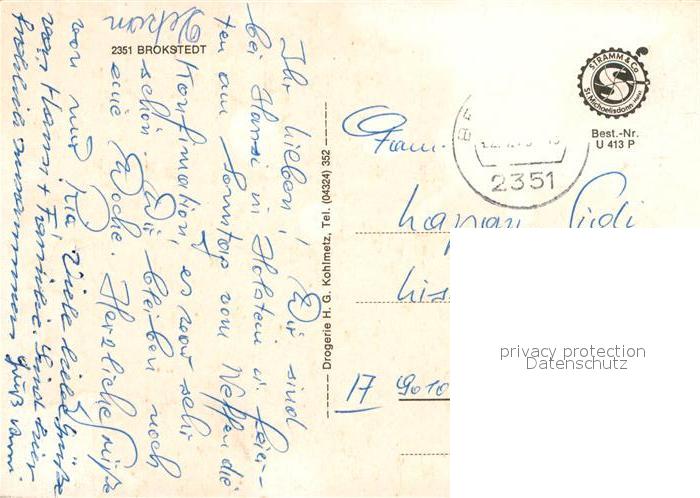 2351 BROKSTEDT
Ihr Lieben! Wir sind
bei Hansi in Holstein u. feier-
ten am Sonntag vom Neffen die
Konfirmation, es war sehr
schön. Wir bleiben noch
eine Woche. Herzliche Grüße
von mir Viele liebe Grüße
Hans + Familie. Sind hier
fröhlich zusammen Gruß
Drogerie H. G. Kohlmetz, Tel. (04324) 352
STRAMM & Co.
St. Michaelisdonn Holst.
Best.-Nr.
U 413 P
2351
Fam.
17
privacy protection
Datenschutz